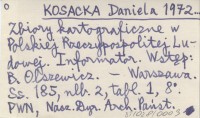 KOSACKA Daniela 1972...
Zbiory kartograficzne w
Polskiej Rzeczypospolitej Lu-
dowej. Informator. Wstęp:
B. Olszewicz. — Warszawa.
Ss. 185, nlb. 2, tabl. 1, 8°.
PWN, Nacz. Dyr. Arch. Państ.